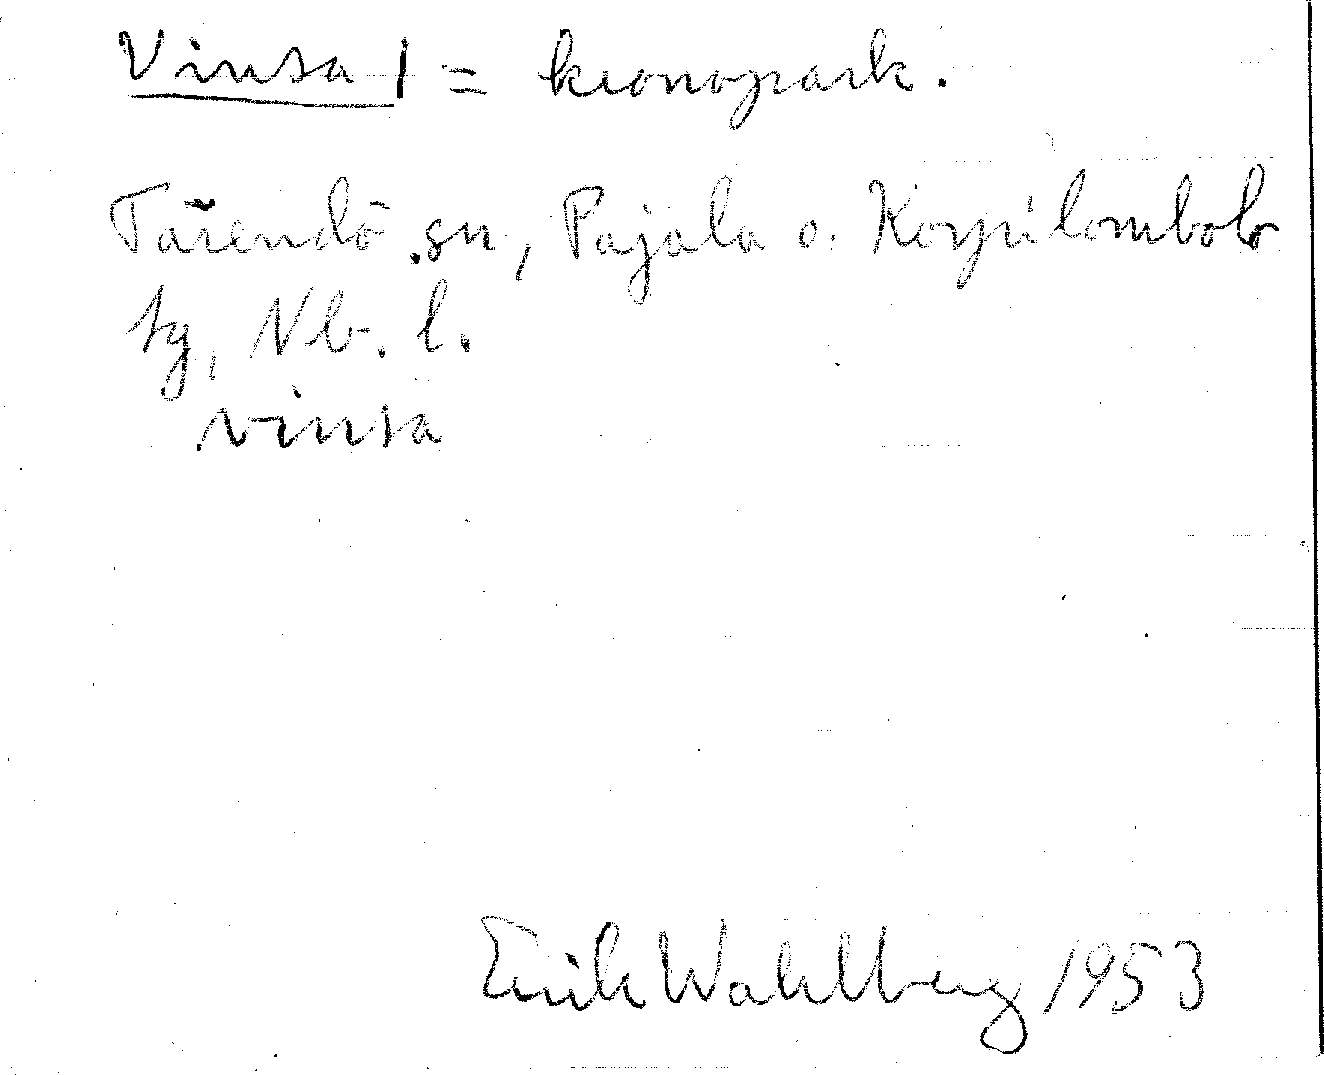 Vinsa | = kronopark.
Tärendö sn, Pajala o. Korpilombolo
tg, Nb. l.
vinsa
Erik Wahlberg 1953